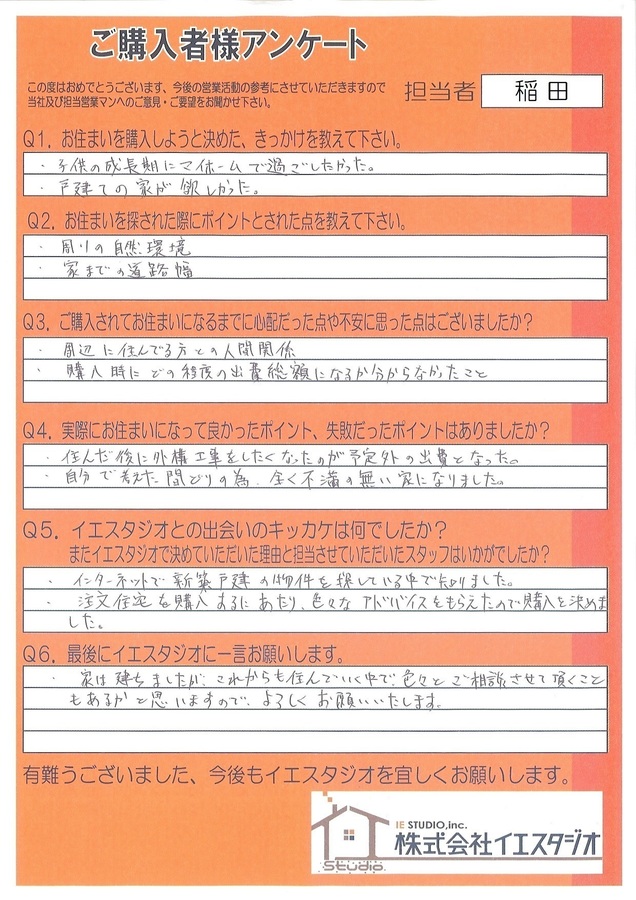 ご購入者様アンケート
この度はおめでとうございます、今後の営業活動の参考にさせていただきますので
当社及び担当営業マンへのご意見・ご要望をお聞かせ下さい。
担当者 稲田
Q1. お住まいを購入しようと決めた、きっかけを教えて下さい。
・子供の成長期にマイホームで過ごしたかった。
・戸建ての家が欲しかった。
Q2. お住まいを探された際にポイントとされた点を教えて下さい。
・周りの自然環境
・家までの道路幅
Q3. ご購入されてお住まいになるまでに心配だった点や不安に思った点はございましたか？
・周辺に住んでる方との人間関係
・購入時にどの程度の出費総額になるか分からなかったこと
Q4. 実際にお住まいになって良かったポイント、失敗だったポイントはありましたか？
・住んだ後に外構工事をしたくなったのが予定外の出費となった。
・自分で考えた間どりの為、全く不満の無い家になりました。
Q5. イエスタジオとの出会いのキッカケは何でしたか？
またイエスタジオで決めていただいた理由と担当させていただいたスタッフはいかがでしたか？
・インターネットで新築戸建の物件を探している中で知りました。
・注文住宅を購入するにあたり、色々なアドバイスをもらえたので購入を決めま
した。
Q6. 最後にイエスタジオに一言お願いします。
・家は建ちましたが、これからも住んでいく中で、色々とご相談させて頂くこと
もあるかと思いますので、よろしくお願いいたします。
有難うございました、今後もイエスタジオを宜しくお願いします。
IE STUDIO,inc.
株式会社イエスタジオ
Studio